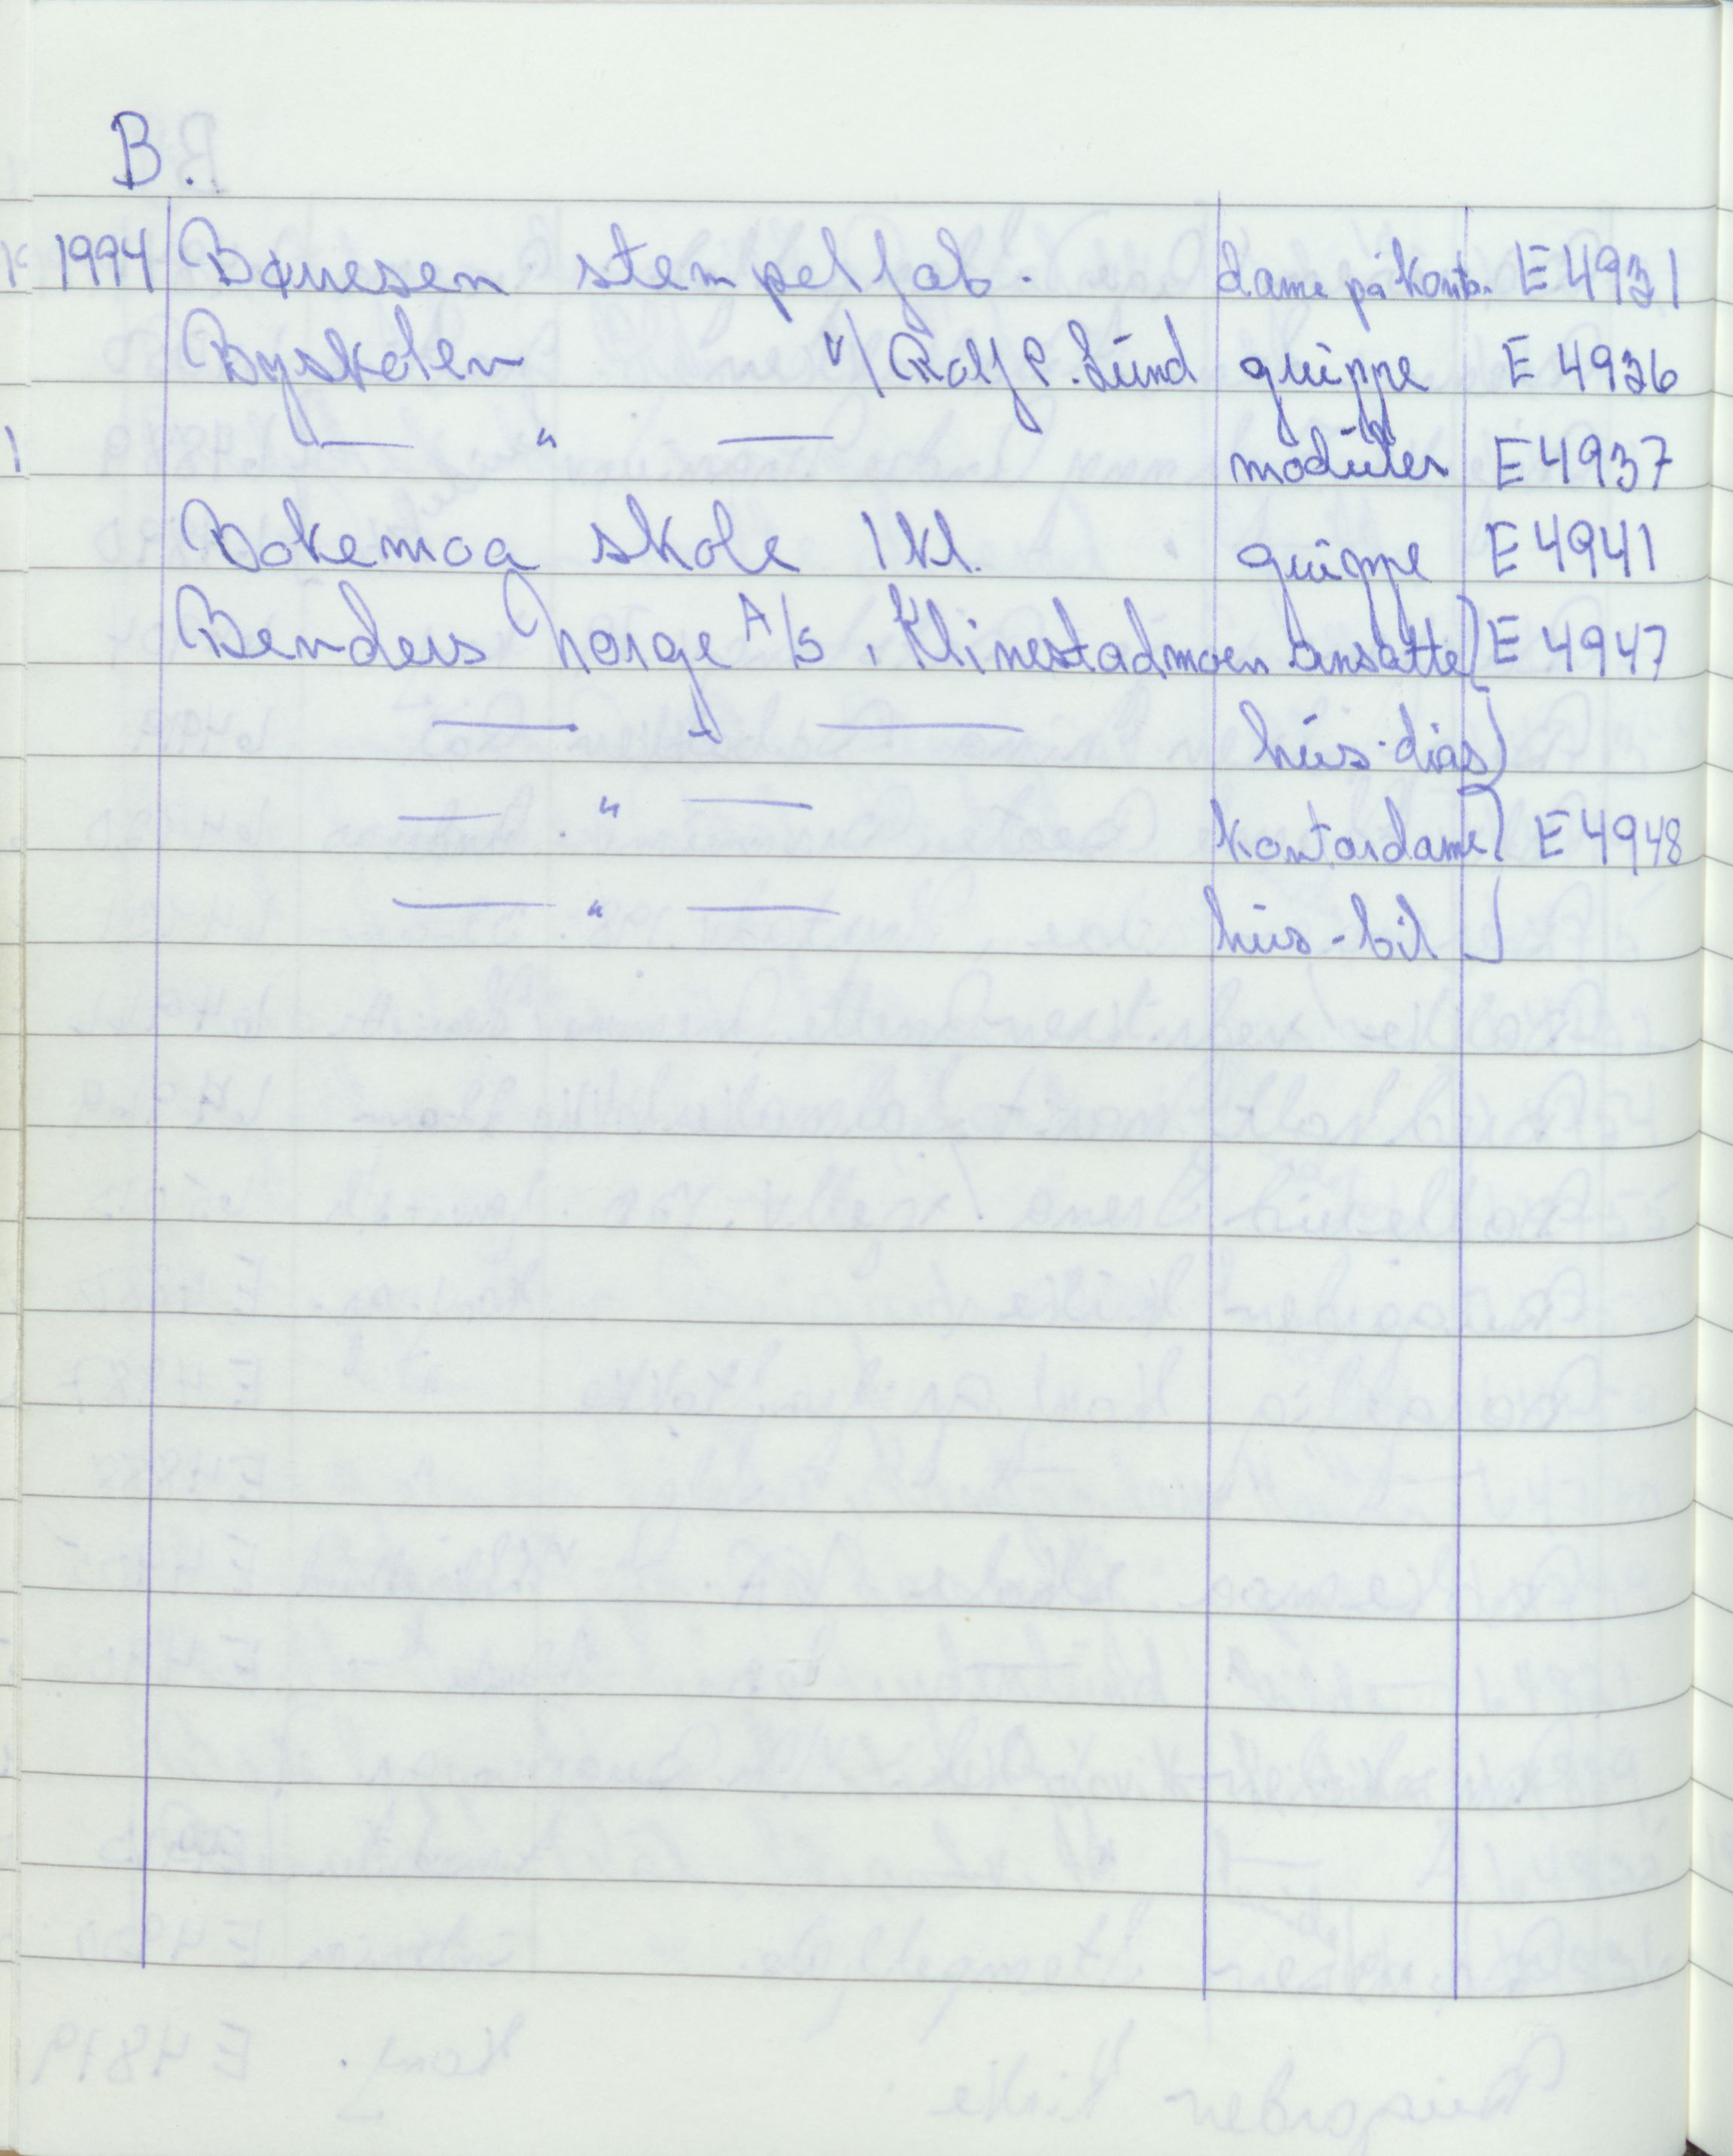 B.
1994 Bøuesen stempelfab. dame på kont. E 4931
Byskolen v/ Rolf P. Lund gruppe E 4936
— " — moduler E 4937
Bokemoa skole 1 kl. gruppe E 4941
Benders Norge A/S, Klinestadmoen ansatte) E 4947
— " — hus-dias)
— " — kontordame) E 4948
— " — hus-bil